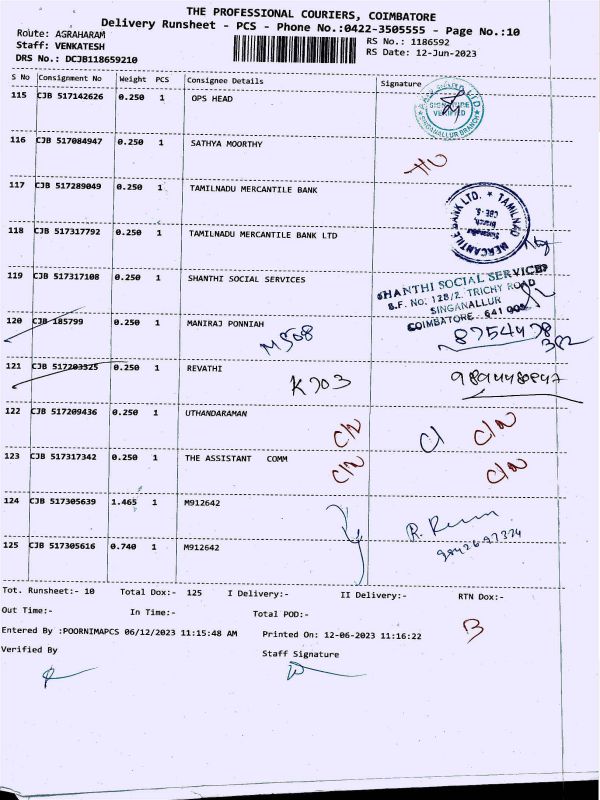 THE PROFESSIONAL COURIERS, COIMBATORE
Delivery Runsheet - PCS - Phone No.:0422-3505555 - Page No.:10
Route: AGRAHARAM
RS No.: 1186592
Staff: VENKATESH
RS Date: 12-Jun-2023
DRS No.: DCJB118659210
S No Consignment No Weight PCS Consignee Details Signature
115 CJB 517142626 0.250 1 OPS HEAD
SIGNATURE VERIFIED
SINGANALLUR BRANCH
116 CJB 517084947 0.250 1 SATHYA MOORTHY
117 CJB 517289049 0.250 1 TAMILNADU MERCANTILE BANK
TAMILNAD MERCANTILE BANK LTD.
Singanallur
Branch,
CBE - 5.
118 CJB 517317792 0.250 1 TAMILNADU MERCANTILE BANK LTD
119 CJB 517317108 0.250 1 SHANTHI SOCIAL SERVICES
SHANTHI SOCIAL SERVICES
S.F. No: 128/2. TRICHY ROAD
SINGANALLUR
COIMBATORE - 641 005
120 CJB 185799 0.250 1 MANIRAJ PONNIAH
M508
8754478
382
121 CJB 517203325 0.250 1 REVATHI
K703
9894480847
122 CJB 517209436 0.250 1 UTHANDARAMAN
C/N C/N
123 CJB 517317342 0.250 1 THE ASSISTANT COMM
C/N C/N
124 CJB 517305639 1.465 1 M912642
125 CJB 517305616 0.740 1 M912642
Tot. Runsheet:- 10 Total Dox:- 125 I Delivery:- II Delivery:- RTN Dox:-
Out Time:- In Time:- Total POD:-
Entered By :POORNIMAPCS 06/12/2023 11:15:48 AM Printed On: 12-06-2023 11:16:22
Verified By Staff Signature